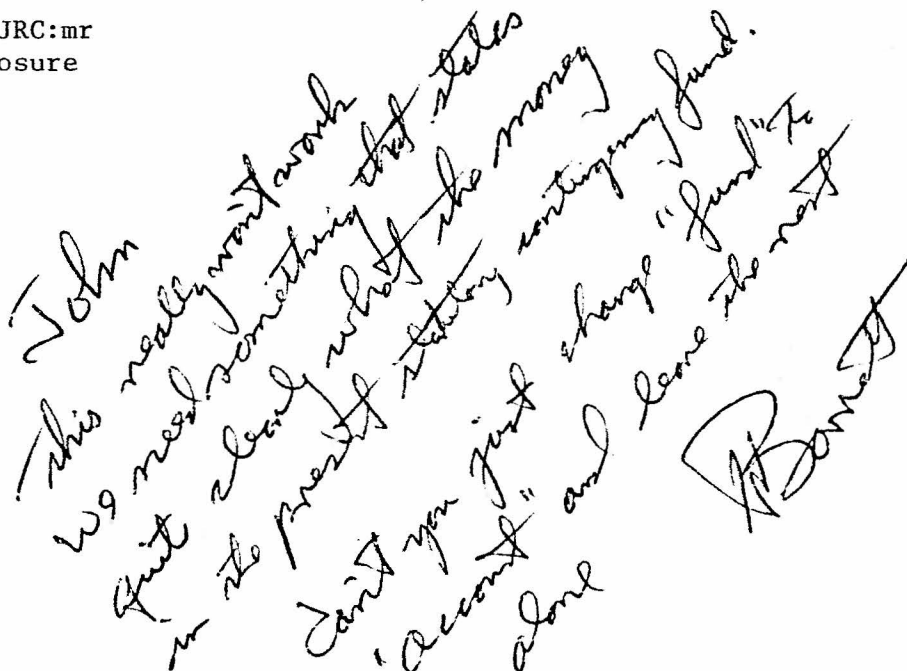 JRC:mr
osure
John
This really won't work
We need something that states
quit clearly what the money
in the present statutory contingency fund.
Can't you just change "fund" to
"account" and leave the rest
alone
Barnett